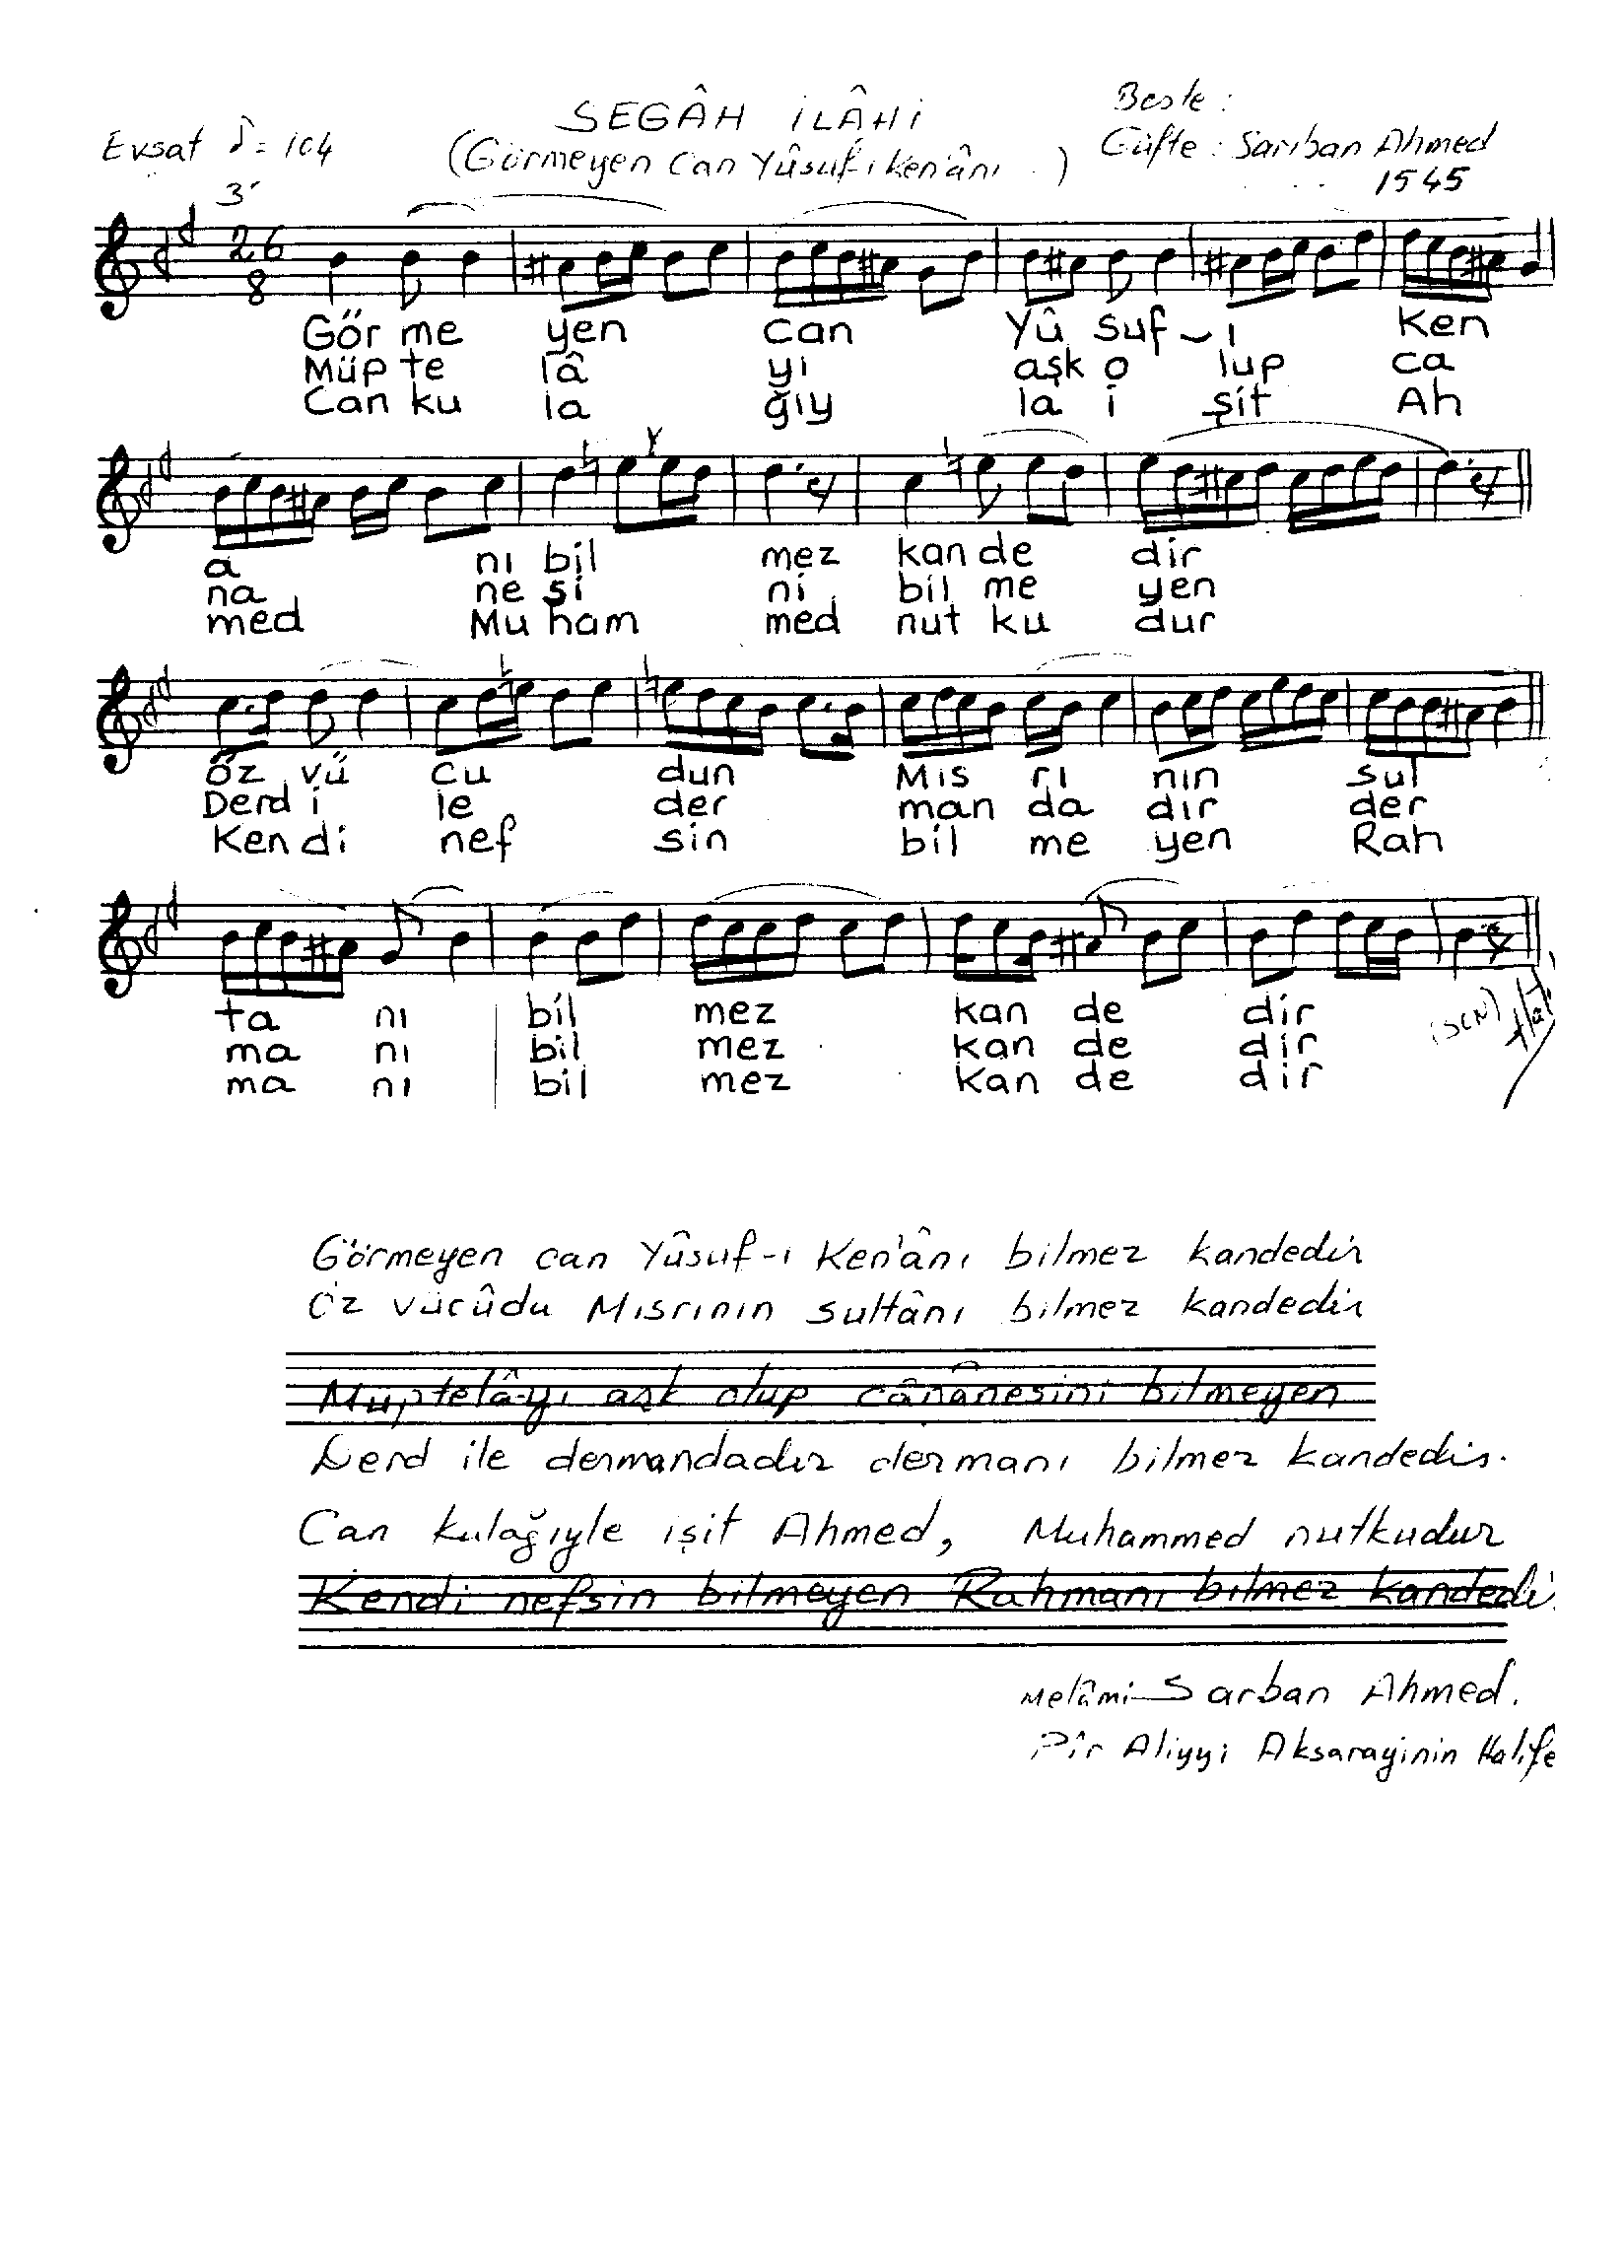 SEGÂH İLÂHİ
(Görmeyen Can Yûsuf-ı Ken'ânı )
Evsat = 104
3'
Beste :
Güfte : Sarıban Ahmed
1545
26
8
Gör me yen can Yû suf-ı Ken
Müp te lâ yı aşk o lup ca
Can ku la ğıy la i şit Ah
a nı bil mez kan de dir
na ne si ni bil me yen
med Mu ham med nut ku dur
öz vü cu dun Mıs rı nın sul
Derd i le der man da dır der
Ken di nef sin bil me yen Rah
ta nı bil mez kan de dir
ma nı bil mez kan de dir
ma nı bil mez kan de dir
(SCN)
Görmeyen can Yûsuf-ı Ken'ânı bilmez kandedir
Öz vücûdu Mısrının sultânı bilmez kandedir
Müptelâ-yı aşk olup cânânesini bilmeyen
Derd ile dermandadır dermanı bilmez kandedir.
Can kulağıyle işit Ahmed, Muhammed nutkudur
Kendi nefsin bilmeyen Rahmanı bilmez kandedi
Melâmi-Sarban Ahmed.
Pîr Aliyyi Aksarayinin Halife